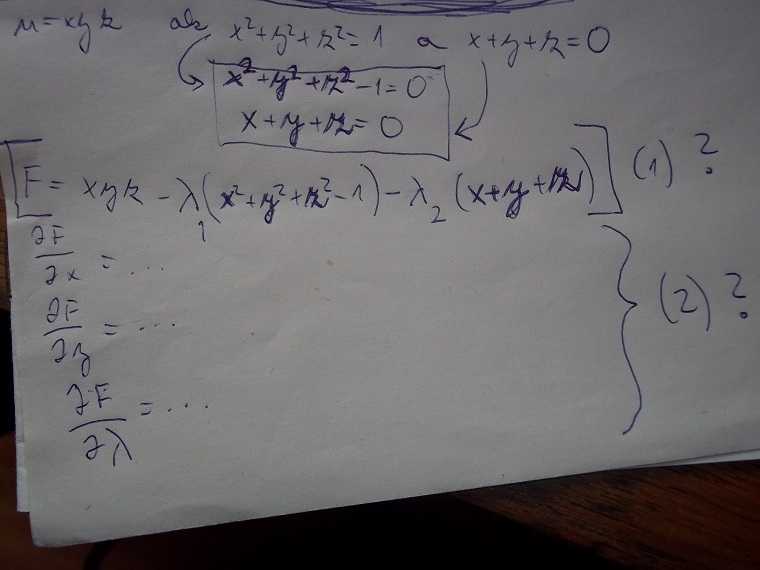 u = xyz ak x² + y² + z² = 1 a x + y + z = 0
x² + y² + z² - 1 = 0
x + y + z = 0
[F = xyz - λ₁(x² + y² + z² - 1) - λ₂(x + y + z)] (1) ?
∂F/∂x = ...
∂F/∂y = ... } (2) ?
∂F/∂λ = ...